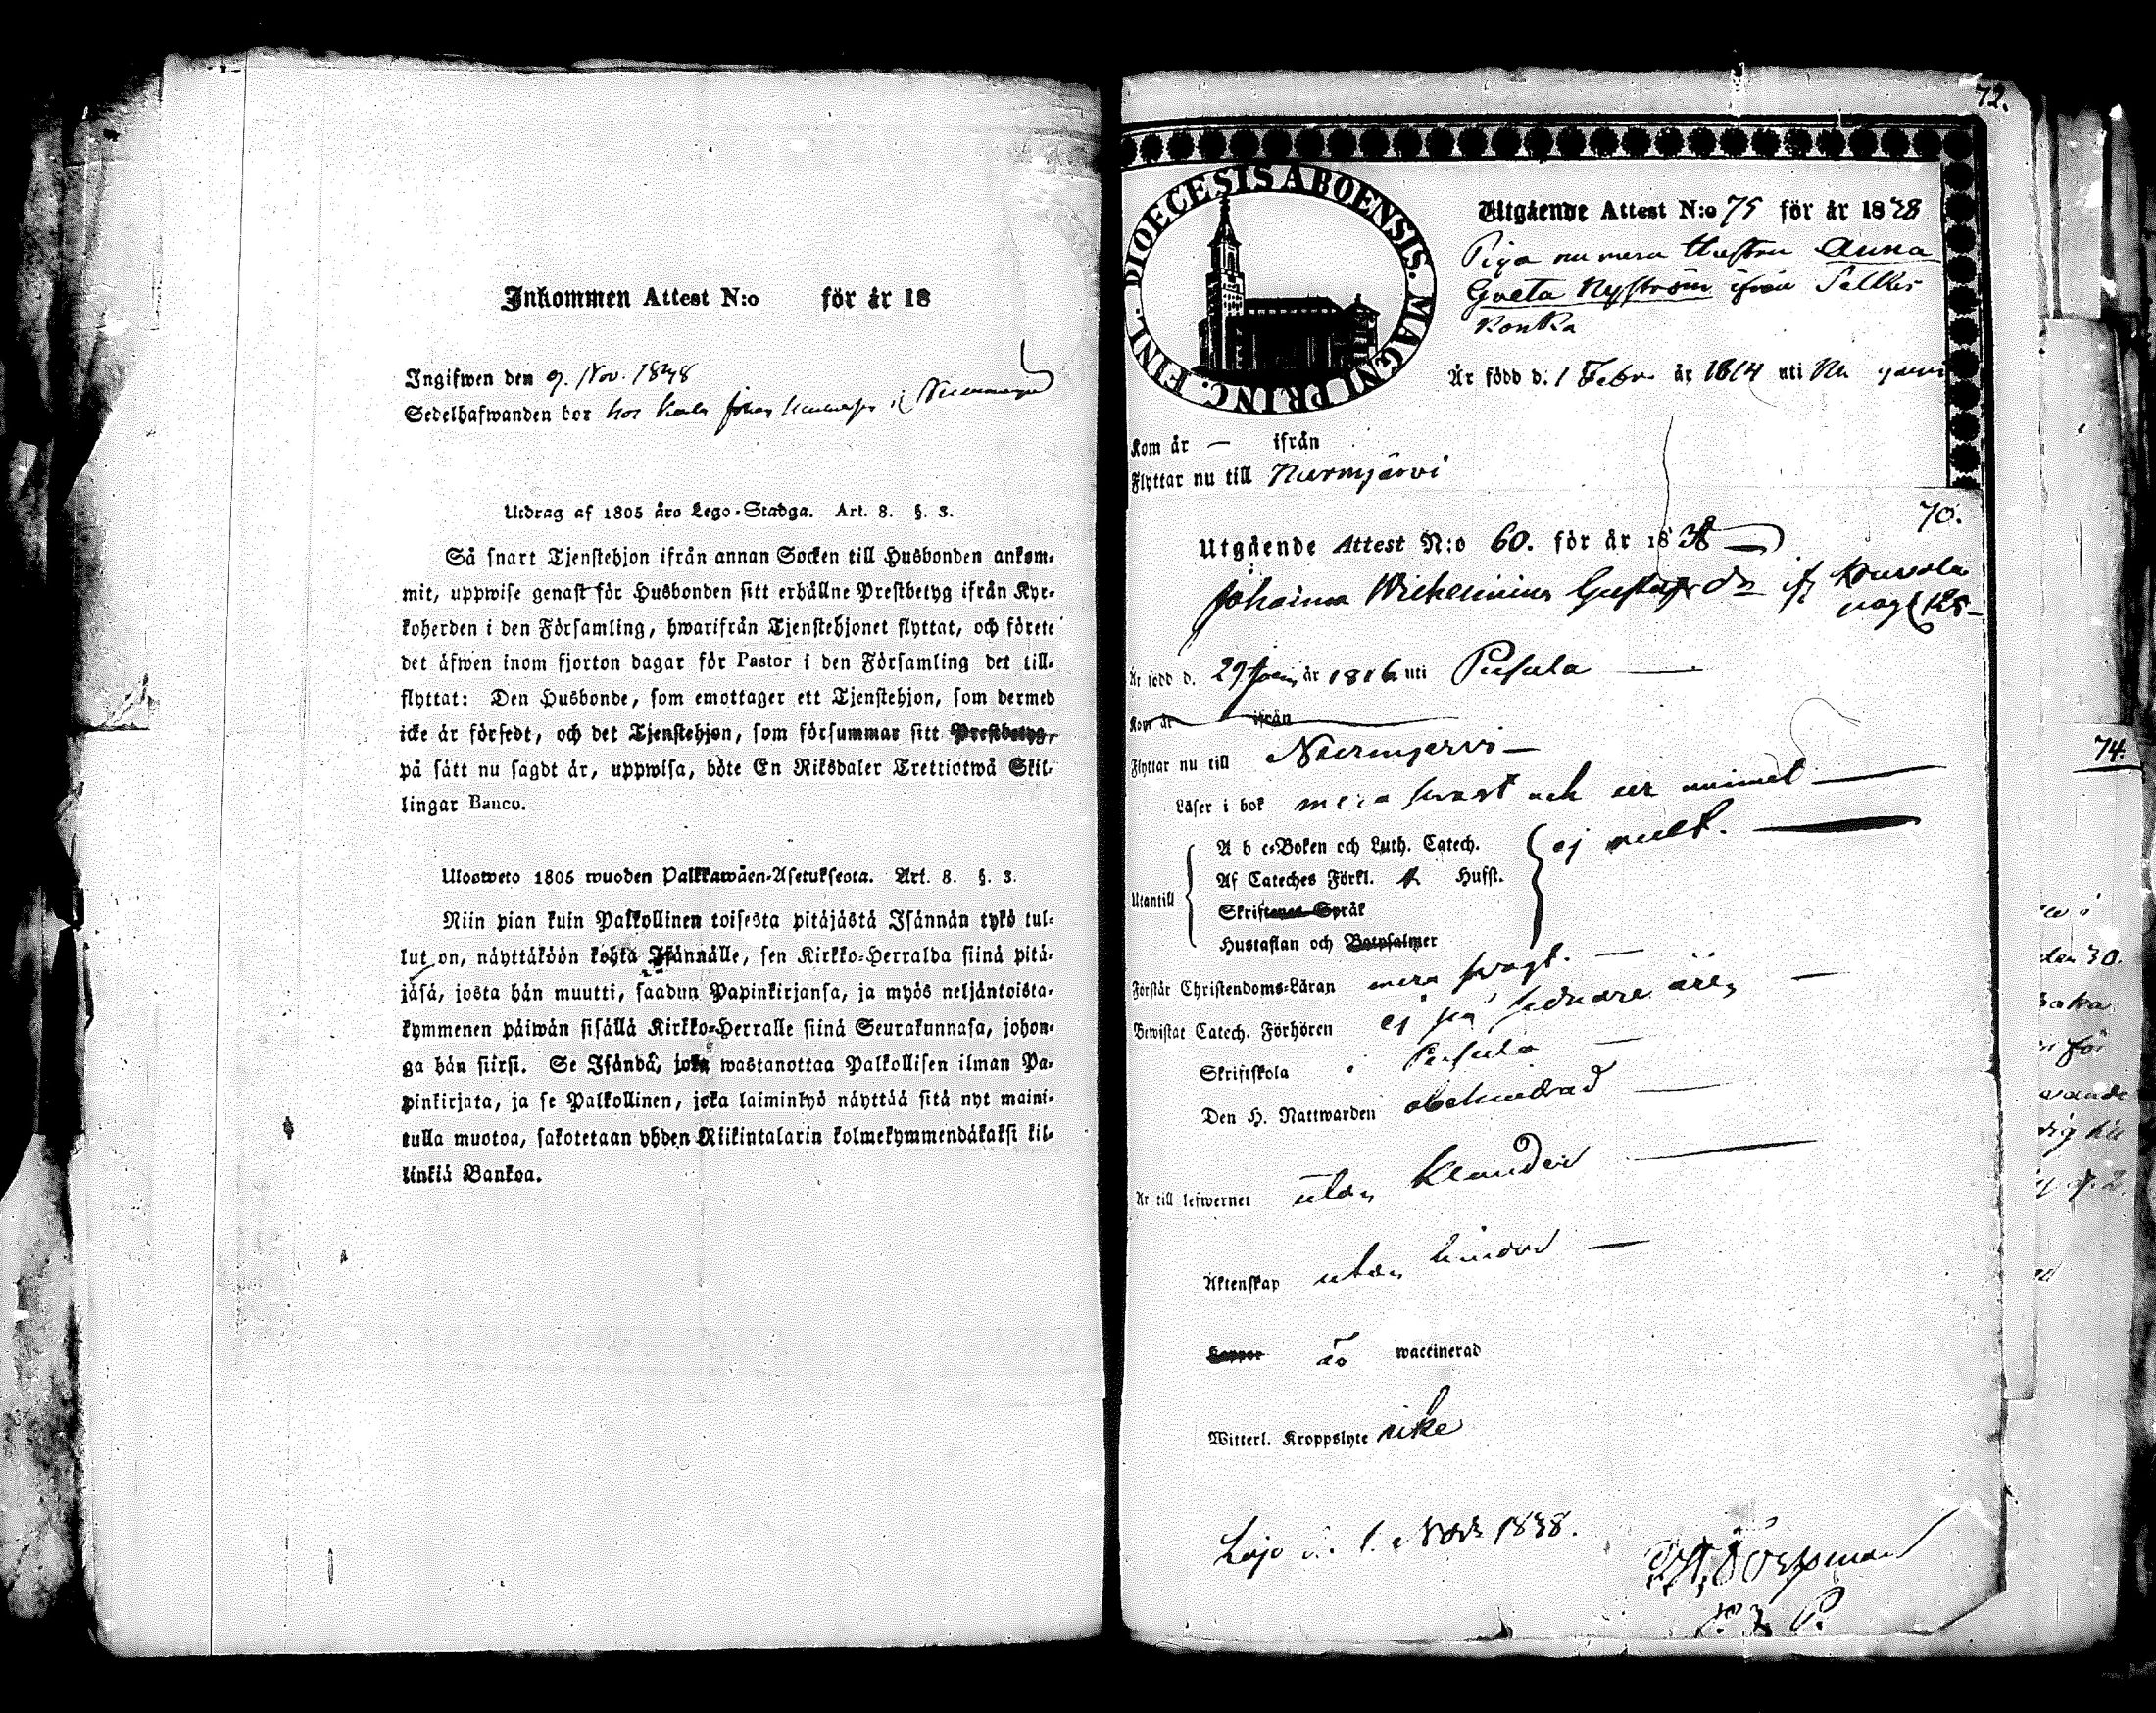 Inkommen Attest N:o för år 18
Ingifwen den 9. Nov. 1838
Sedelhafwanden bor hos Johan
Utdrag af 1805 års Lego-Stadga. Art. 8. §. 3.
Så snart Tjenstehjon ifrån annan Socken till Husbonden ankom-
mit, uppwise genast för Husbonden sitt erhållne Prestbetyg ifrån Kyr-
koherden i den Församling, hwarifrån Tjenstehjonet flyttat, och förete
det äfwen inom fjorton dagar för Pastor i den Församling det till-
flyttat: Den Husbonde, som emottager ett Tjenstehjon, som dermed
icke är försedt, och det Tjenstehjon, som försummar sitt Prestbetyg,
på sätt nu sagdt är, uppwisa, böte En Riksdaler Trettiotwå Skil-
lingar Banco.
Ulosweto 1805 wuoden Palkkawäen-Asetuksesta. Art. 8. §. 3.
Niin pian kuin Palkollinen toisesta pitäjästä Isännän tykö tul-
lut on, näyttäköön kohta Isännälle, sen Kirkko-Herralda siinä pitä-
jäsä, josta hän muutti, saadun Papinkirjansa, ja myös neljäntoista-
kymmenen päiwän sisällä Kirkko-Herralle siinä Seurakunnasa, johon-
ga hän siirsi. Se Isändä, joka wastanottaa Palkollisen ilman Pa-
pinkirjata, ja se Palkollinen, joka laiminlyö näyttää sitä nyt maini-
tulla muotoa, sakotetaan yhden Riikintalarin kolmekymmendäkaksi kil-
linkiä Bankoa.
72.
DIOECESIS ABOENSIS. MAGNI PRINC. FINL.
Utgående Attest N:o 75 för år 1838
Piga numera Hustru Anna
Greta Nyström ifrån Selki
Konka
Är född d. 1 Febr. år 1814 uti
Kom år — ifrån
Flyttar nu till Nurmjärvi
70.
Utgående Attest N:o 60. för år 1838
Johanna Wilhelmina Gustafsdr
Är född d. 29 år 1816 uti Pusula
Kom år ifrån
Flyttar nu till Nurmjervi
Läser i bok mera swagt och ur minnet
A b c-Boken och Luth. Catech.
Af Cateches Förkl. Husst.
Utantill
ej
Skriftenes Språk
Hustaflan och Botpsalmer
Förstår Christendoms-Läran mera swagt.
Bewistat Catech. Förhören ej på sednare åren
Skriftskola i Pusula
Den H. Nattwarden obehindrad
Är till lefwernet utan klander
Äktenskap utan hinder
Koppor waccinerad
Witterl. Kroppslyte icke
Lojo d. 1. Nov 1838.
74.
den 30.
för